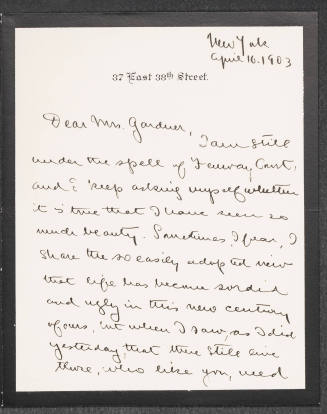 New York
April 16. 1903
37 East 38th Street.
Dear Mrs. Gardner,
I am still
under the spell of Fenway Court,
and I keep asking myself whether
it is true that I have seen so
much beauty. Sometimes, I fear, I
share the so easily adopted view
that life has become sordid
and ugly in this new century
of ours, but when I saw, as I did
yesterday, that there still are
those, who like you, need